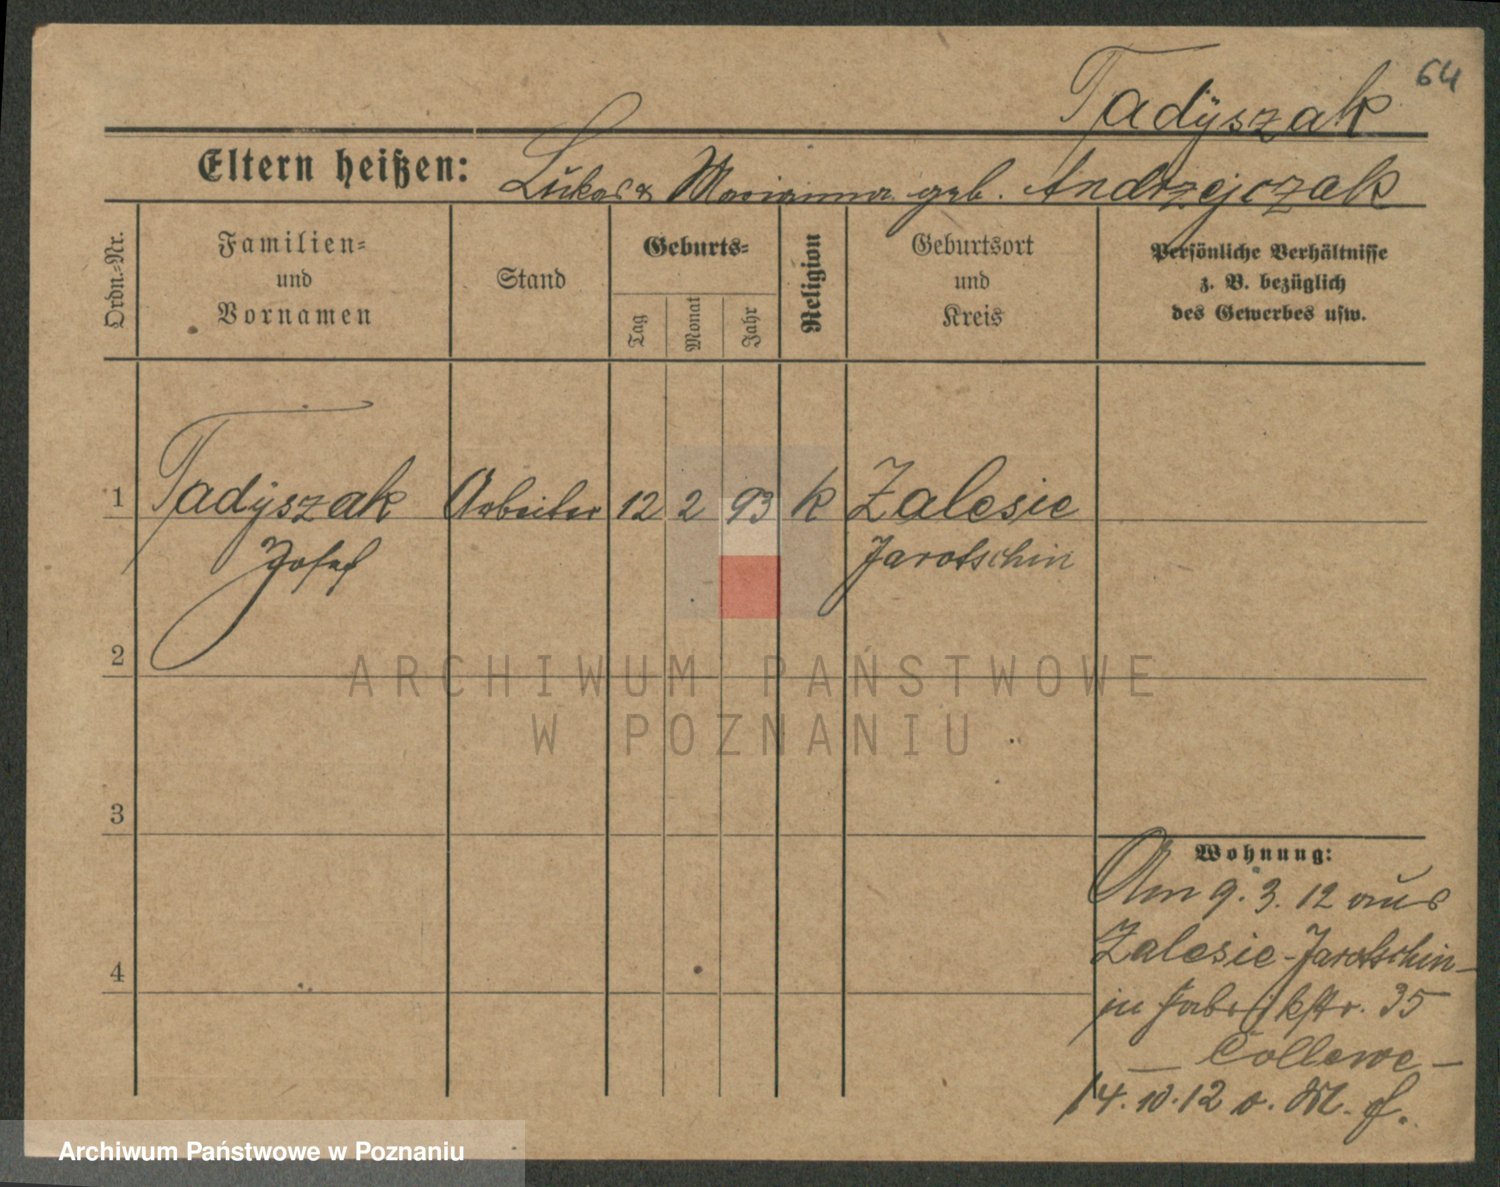 64
Tadÿszak
Eltern heißen: Lukas & Marianna geb. Andrzejczak
Ordn.-Nr.
Familien-
und
Vornamen
Stand
Geburts-
Tag
Monat
Jahr
Religion
Geburtsort
und
Kreis
Persönliche Verhältnisse
z. B. bezüglich
des Gewerbes usw.
1 Tadÿszak Arbeiter 12 2 93 k Zalesie
Josef Jarotschin
2
ARCHIWUM PAŃSTWOWE
W POZNANIU
3
Wohnung:
Am 9. 3. 12 aus
Zalesie-Jarotschin-
in Fabrikstr. 35
— Collewe —
4
14. 10. 12 o. M. f.
Archiwum Państwowe w Poznaniu